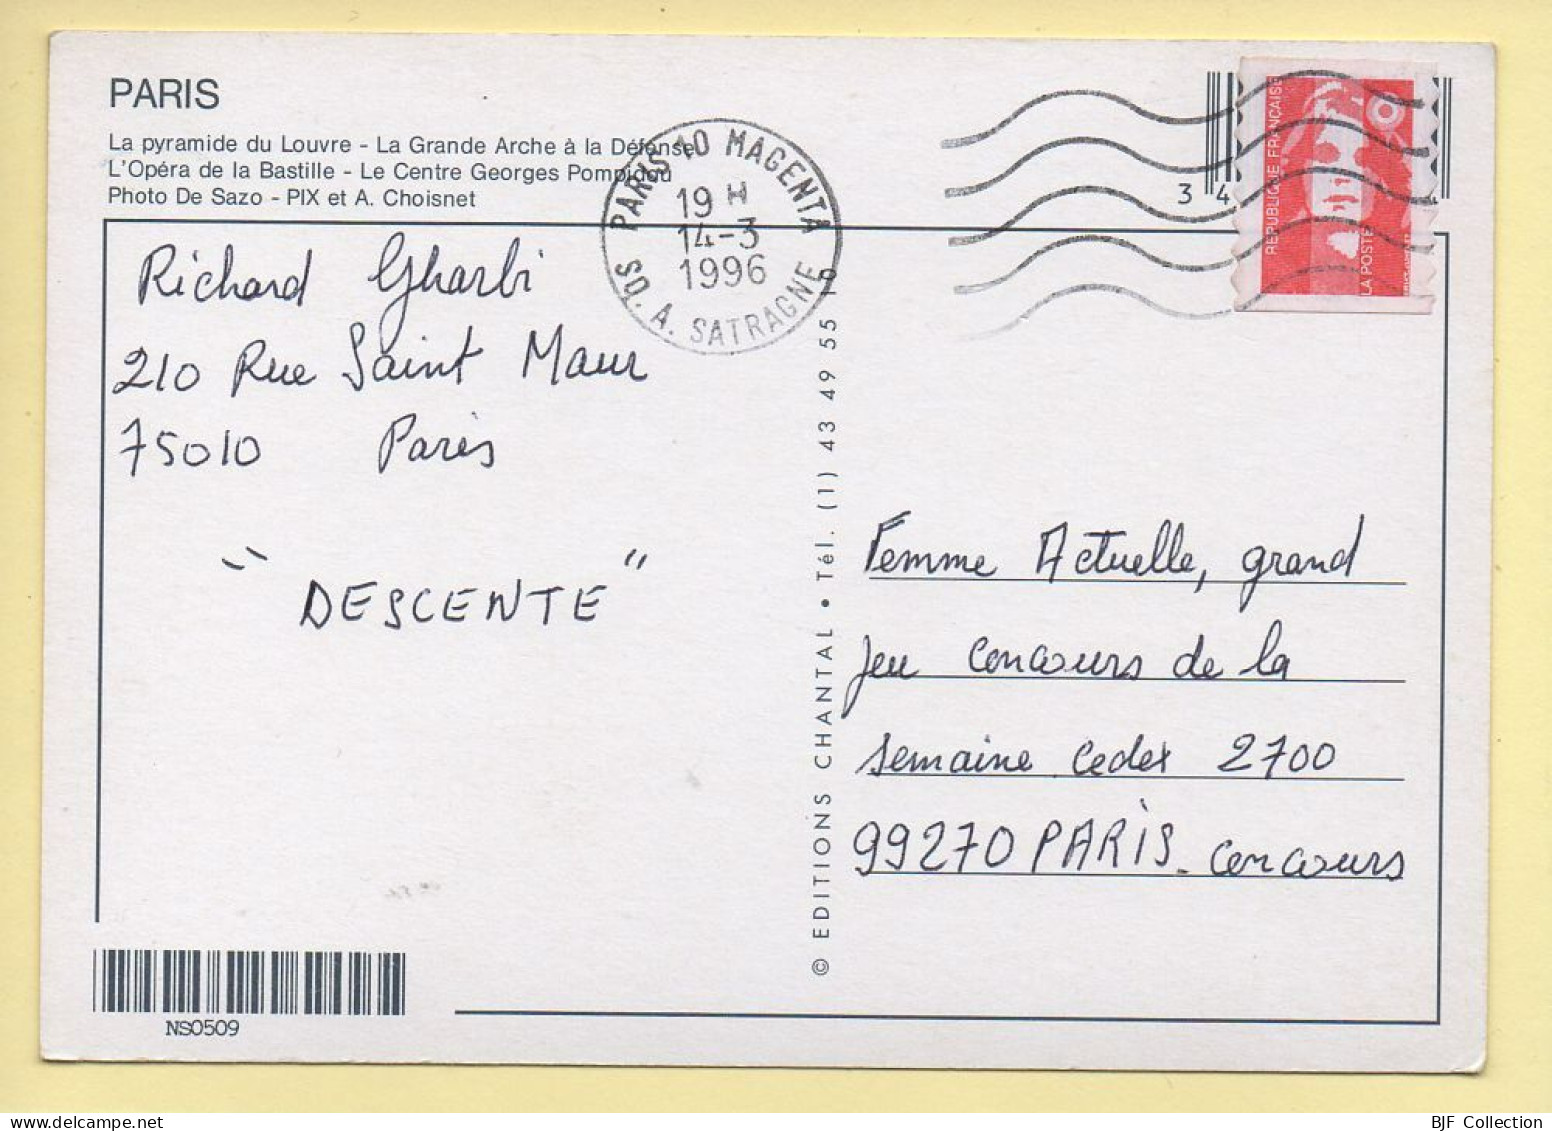 PARIS
La pyramide du Louvre - La Grande Arche à la Défense
L'Opéra de la Bastille - Le Centre Georges Pompidou
Photo De Sazo - PIX et A. Choisnet
PARIS 10 MAGENTA
19 H
14-3
1996
SQ. A. SATRAGNE
3 4
REPUBLIQUE FRANÇAISE
LA POSTE
Richard Gharbi
210 Rue Saint Maur
75010 Paris
"DESCENTE"
© EDITIONS CHANTAL • Tél. (1) 43 49 55 16
Femme Actuelle, grand
jeu concours de la
semaine Cedex 2700
99270 PARIS - concours
NS0509
BJF Collection